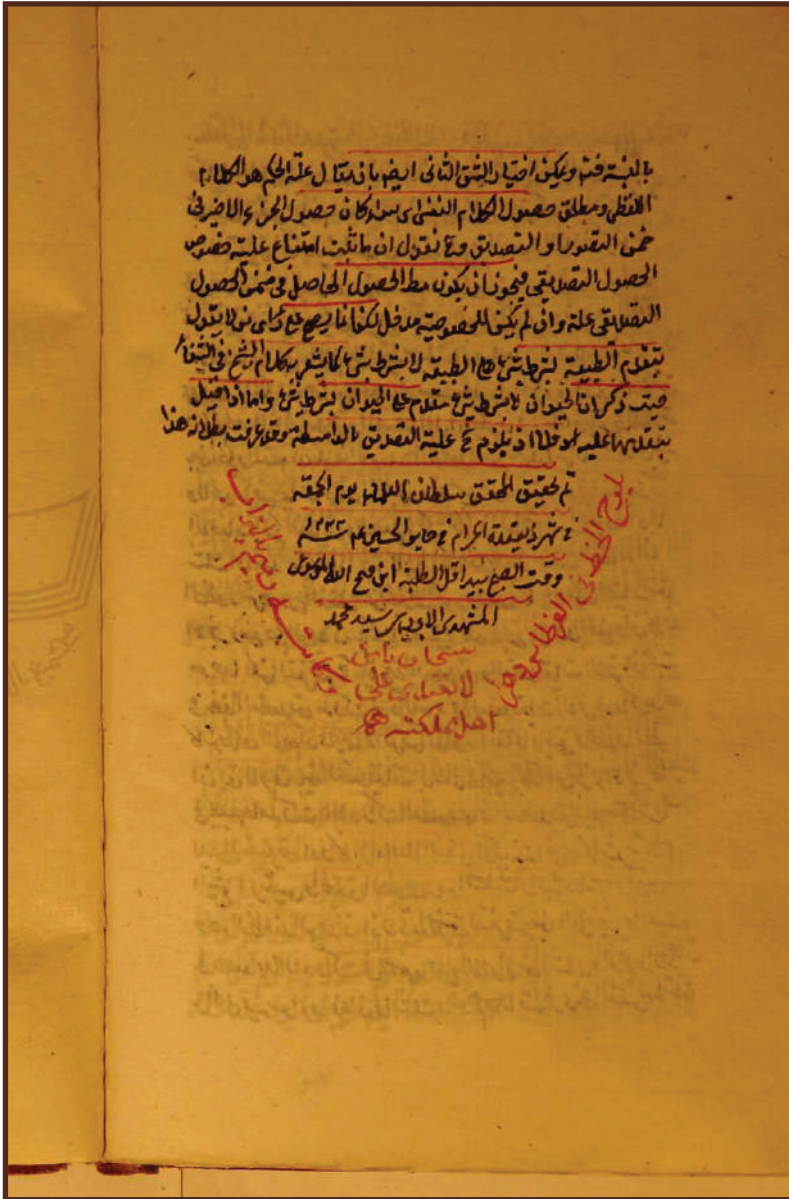 بالنسبة فتد ويمكن اختيار الشق الثانى ايضا بان يقال علة الحكم هو الكلام
اللفظى ومطلق حصول الكلام النفسى سواء كان حصول الجزء الاخير فى
ضمن التصور او التصديق وح نقول ان ما ثبت امتناع علية خصوص
الحصول التصديقى فيجوز ان يكون مط الحصول الحاصل فى ضمن الحصول
التصديقى علة وان لم يكن للخصوصية مدخل لكن انما يصح على راى من لا يقول
بتقدم الطبيعة بشرط شئ على الطبيعة لا بشرط شئ كما يشعر به كلام الشيخ فى الشفا
حيث ذكر ان الحيوان بشرط شئ متقدم على الحيوان لا بشرط شئ واما اذا قيل
بتقدمها عليه فلا اذ يلزم ح علية التصديق بالواسطة وقد عرفت بطلانه هذا
تم تحقيق المحقق سلطان العلماء يوم الجمعة
فى شهر ذيقعدة الحرام فى سنه ١٢٣٣
وقت الصبح بيد اقل الطلبة ابن فتح الله الموسوى
المشهدى سيد محمد
يلوح الخط فى القرطاس دهرا
وكاتبه رميم فى التراب
سبحان من
لا يعتدى على
اهل مملكته